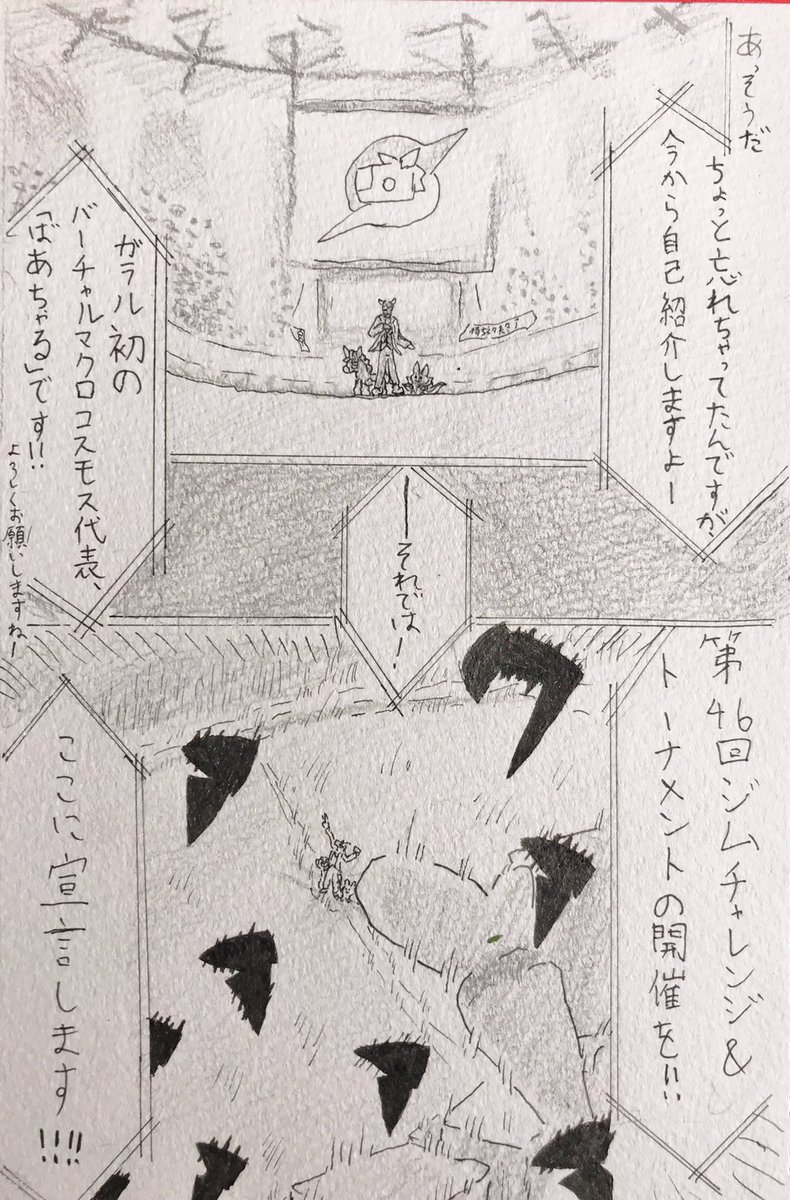 あっそうだ
ちょっと忘れちゃってたんですが、
今から自己紹介しますよー
ガラル初の
バーチャルマクロコスモス代表、
「ばあちゃる」です!!
よろしくお願いしますねー
ーそれでは!
第46回ジムチャレンジ&
トーナメントの開催を!!
ここに宣言します!!!!